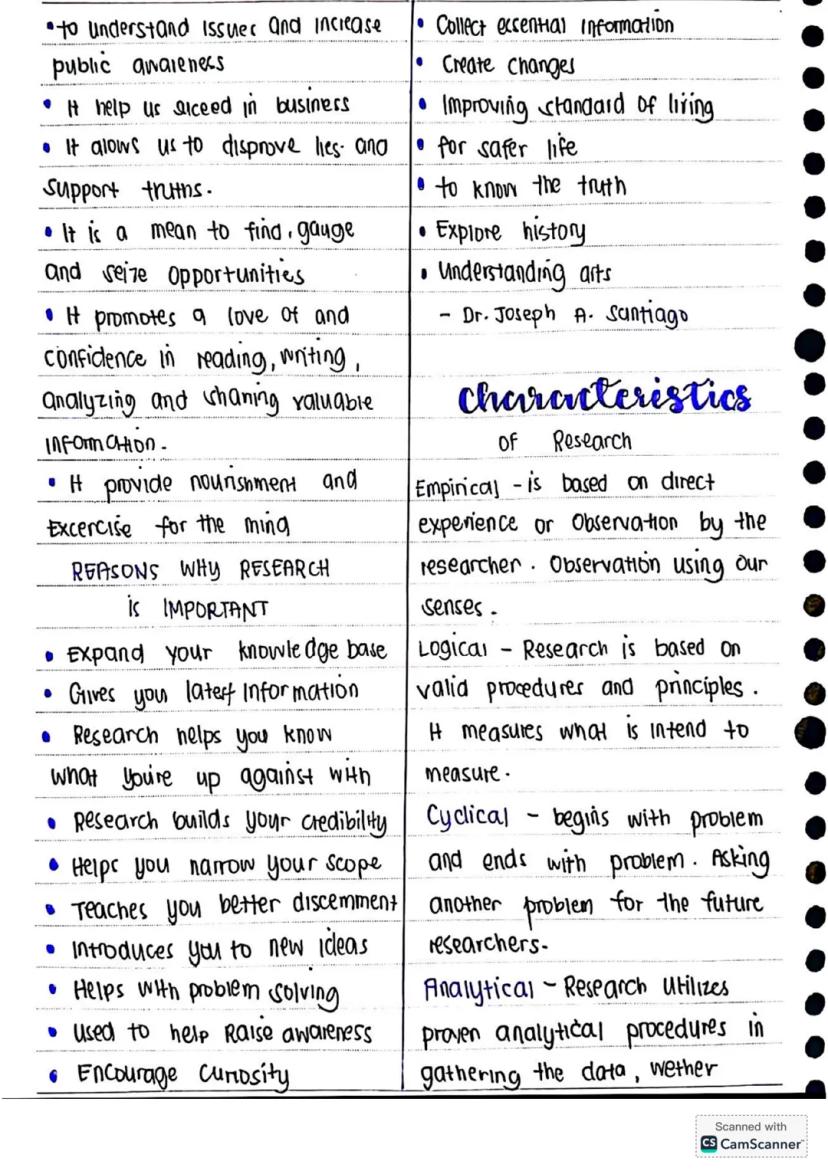 • to understand Issues and increase
public awareness
• It help us suceed in business
• It alows us to disprove lies and
support truths.
• It is a mean to find, gauge
and seize opportunities
• It promotes a love of and
confidence in reading, writing,
analyzing and sharing valuable
information.
• It provide nourishment and
Excercise for the mind
REASONS WHY RESEARCH
is IMPORTANT
• Expand your knowledge base
• Gives you latest Information
• Research helps you know
what you're up against with
• Research builds your credibility
• Helps you narrow your scope
• Teaches you better discernment
• Introduces you to new ideas
• Helps with problem solving
• Used to help Raise awareness
• Encourage Curiosity
• Collect essential information
• Create changes
• Improving standard of living
• for safer life
• to know the truth
• Explore history
• Understanding arts
- Dr. Joseph A. Santiago
Characteristics
of Research
Empirical - is based on direct
experience or Observation by the
researcher. Observation using our
senses.
Logical - Research is based on
valid procedures and principles.
It measures what is intend to
measure.
Cyclical - begins with problem
and ends with problem. Asking
another problem for the future
researchers.
Analytical - Research utilizes
proven analytical procedures in
gathering the data, wether
Scanned with
CS CamScanner